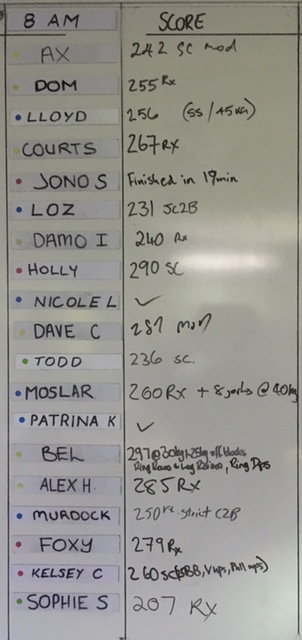 8 AM SCORE
AX 242 SC mod
DOM 255 Rx
LLOYD 256 (55/45kg)
COURTS 267 RX
JONO S Finished in 19min
LOZ 231 SC2B
DAMO I 240 Rx
HOLLY 290 SC
NICOLE L ✓
DAVE C 287
TODD 236 SC.
MOSLAR 260 RX + 8 jerks @ 40kg
PATRINA K ✓
BEL 297 @30kg
Ring Rows + Leg Raises, Ring Dips
ALEX H. 285 RX
MURDOCK 250 strict C2B
FOXY 279 Rx
KELSEY C 260 SC
SOPHIE S 207 RX